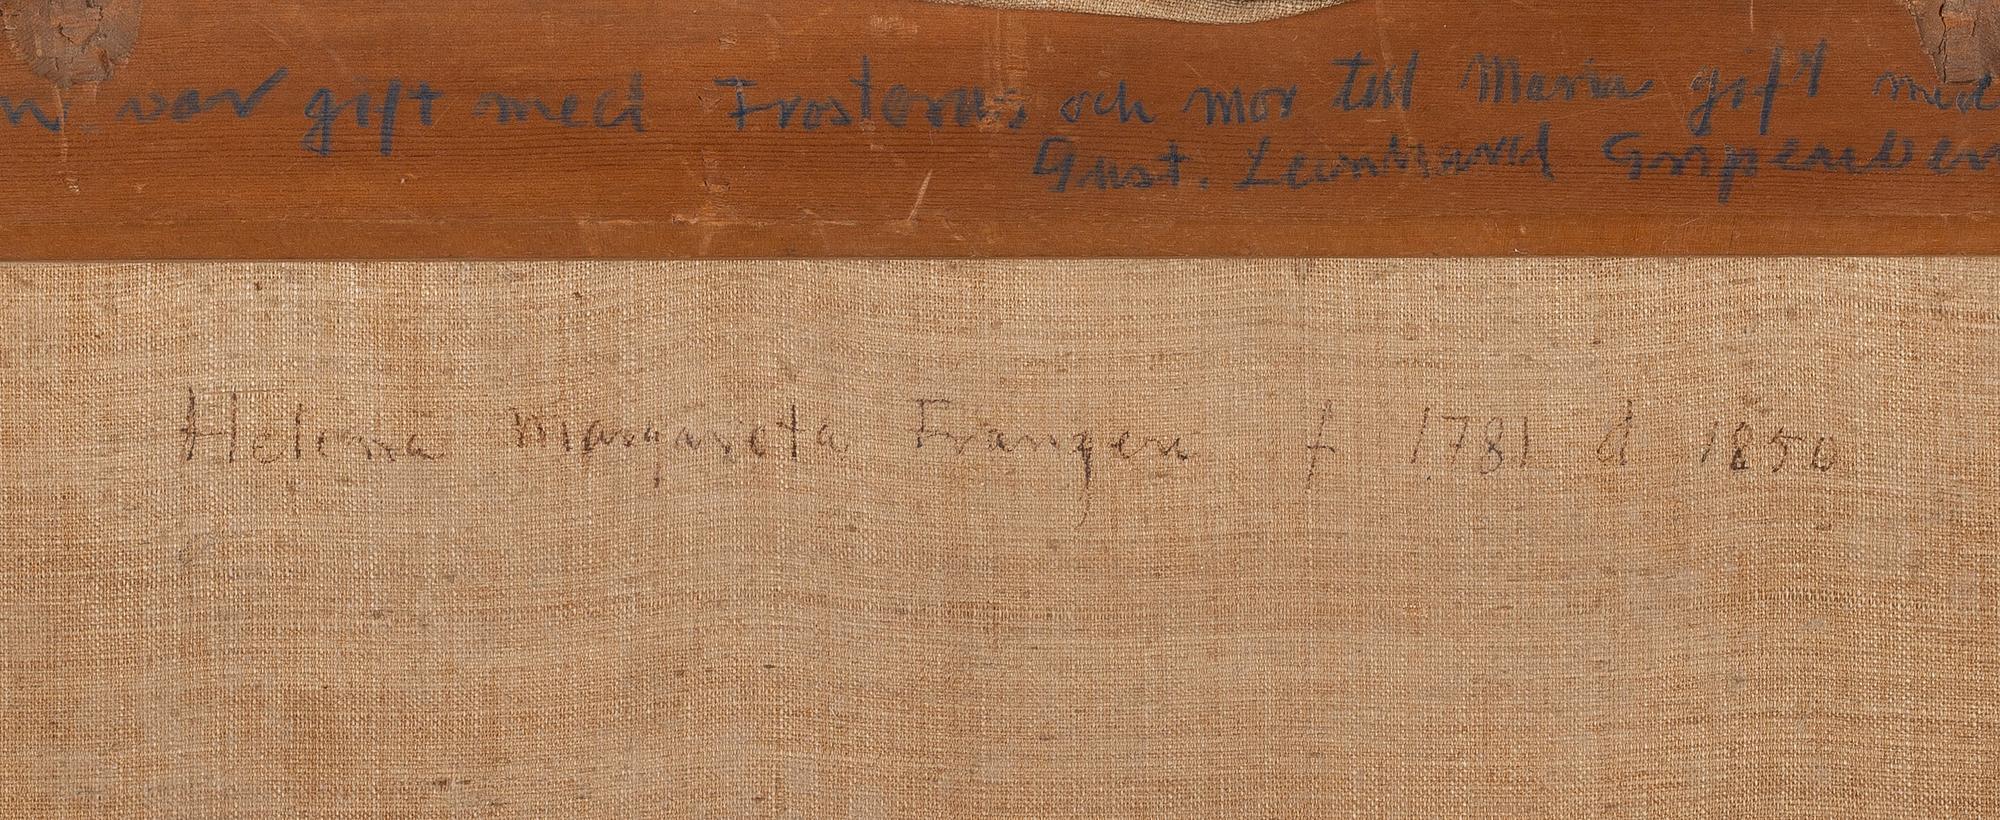 n. var gift med Frosterus och mor till Maria gift med
Gust. Leonhard Gripenber
Helena Margareta Franzen f 1781 d 1850